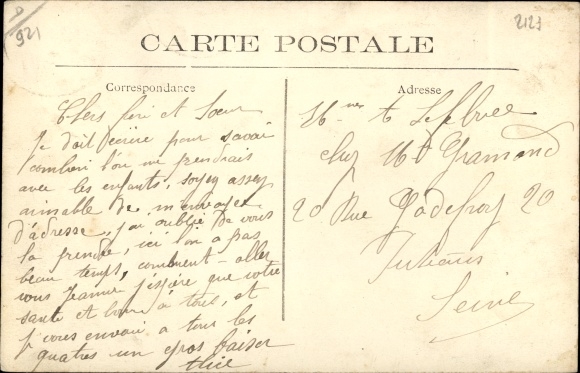 921
2123
CARTE POSTALE
Correspondance
Chers fèrè et Soeur
Je doit écrire pour savoir
combien l'on me prendrais
avec les enfants, soyez assez
aimable de m'envoyer
D'adresse, j'ai oublié de vous
la prendre, ici l'on a pas
beau temps, comment - aller
vous Jeanne j'éspère que votre
santé et bonne à tous, et
j vous envoie a tous les
quatres un gros baiser
Adresse
A Lefèvre
chez Mr Gramond
20 Rue Godefroy 20
Puteaux
Seine